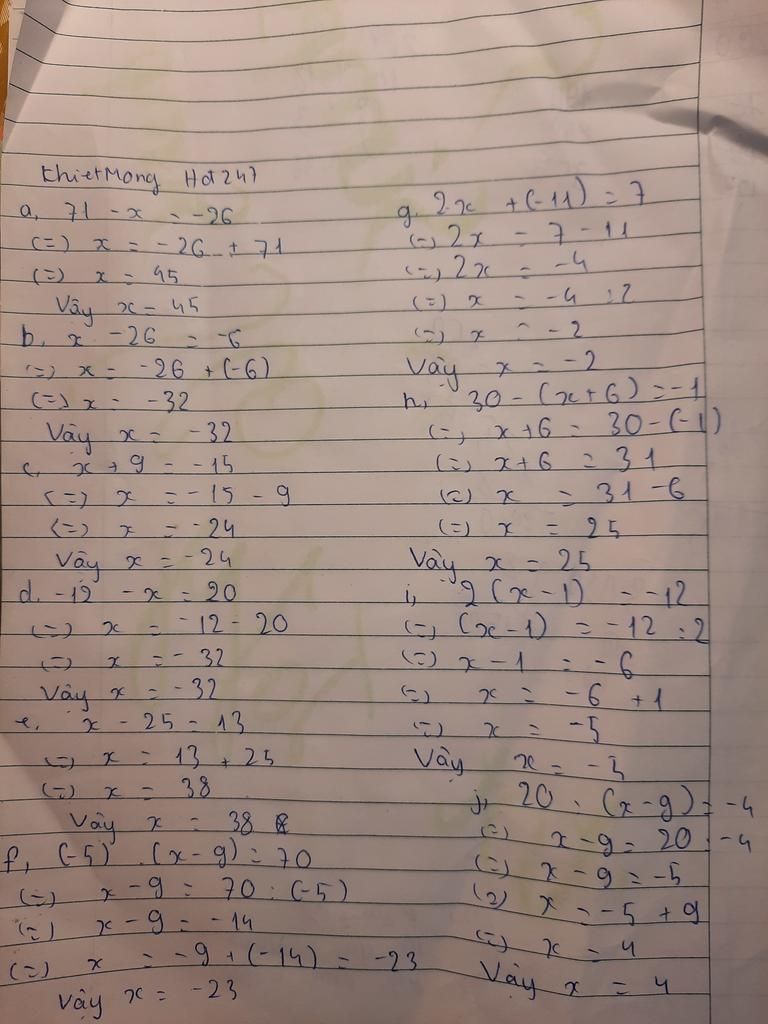 KhietMong Hot247
a, 71 - x = -26
(=) x = -26 + 71
(=) x = 45
Vậy x = 45
b, x - 26 = -6
(=) x = -26 + (-6)
(=) x = -32
Vậy x = -32
c, x + 9 = -15
(=) x = -15 - 9
(=) x = -24
Vậy x = -24
d. -12 - x = 20
(=) x = -12 - 20
(=) x = -32
Vậy x = -32
e, x - 25 = 13
(=) x = 13 + 25
(=) x = 38
Vậy x = 38
f, (-5) . (x - 9) = 70
(=) x - 9 = 70 : (-5)
(=) x - 9 = -14
(=) x = -9 + (-14) = -23
Vậy x = -23
g. 2.x + (-11) = 7
(=) 2x = 7 - 11
(=) 2x = -4
(=) x = -4 : 2
(=) x = -2
Vậy x = -2
h, 30 - (x + 6) = -1
(=) x + 6 = 30 - (-1)
(=) x + 6 = 31
(=) x = 31 - 6
(=) x = 25
Vậy x = 25
i, 2 (x - 1) = -12
(=) (x - 1) = -12 : 2
(=) x - 1 = -6
(=) x = -6 + 1
(=) x = -5
Vậy x = -5
j, 20 : (x - 9) = -4
(=) x - 9 = 20 : -4
(=) x - 9 = -5
(=) x = -5 + 9
(=) x = 4
Vậy x = 4